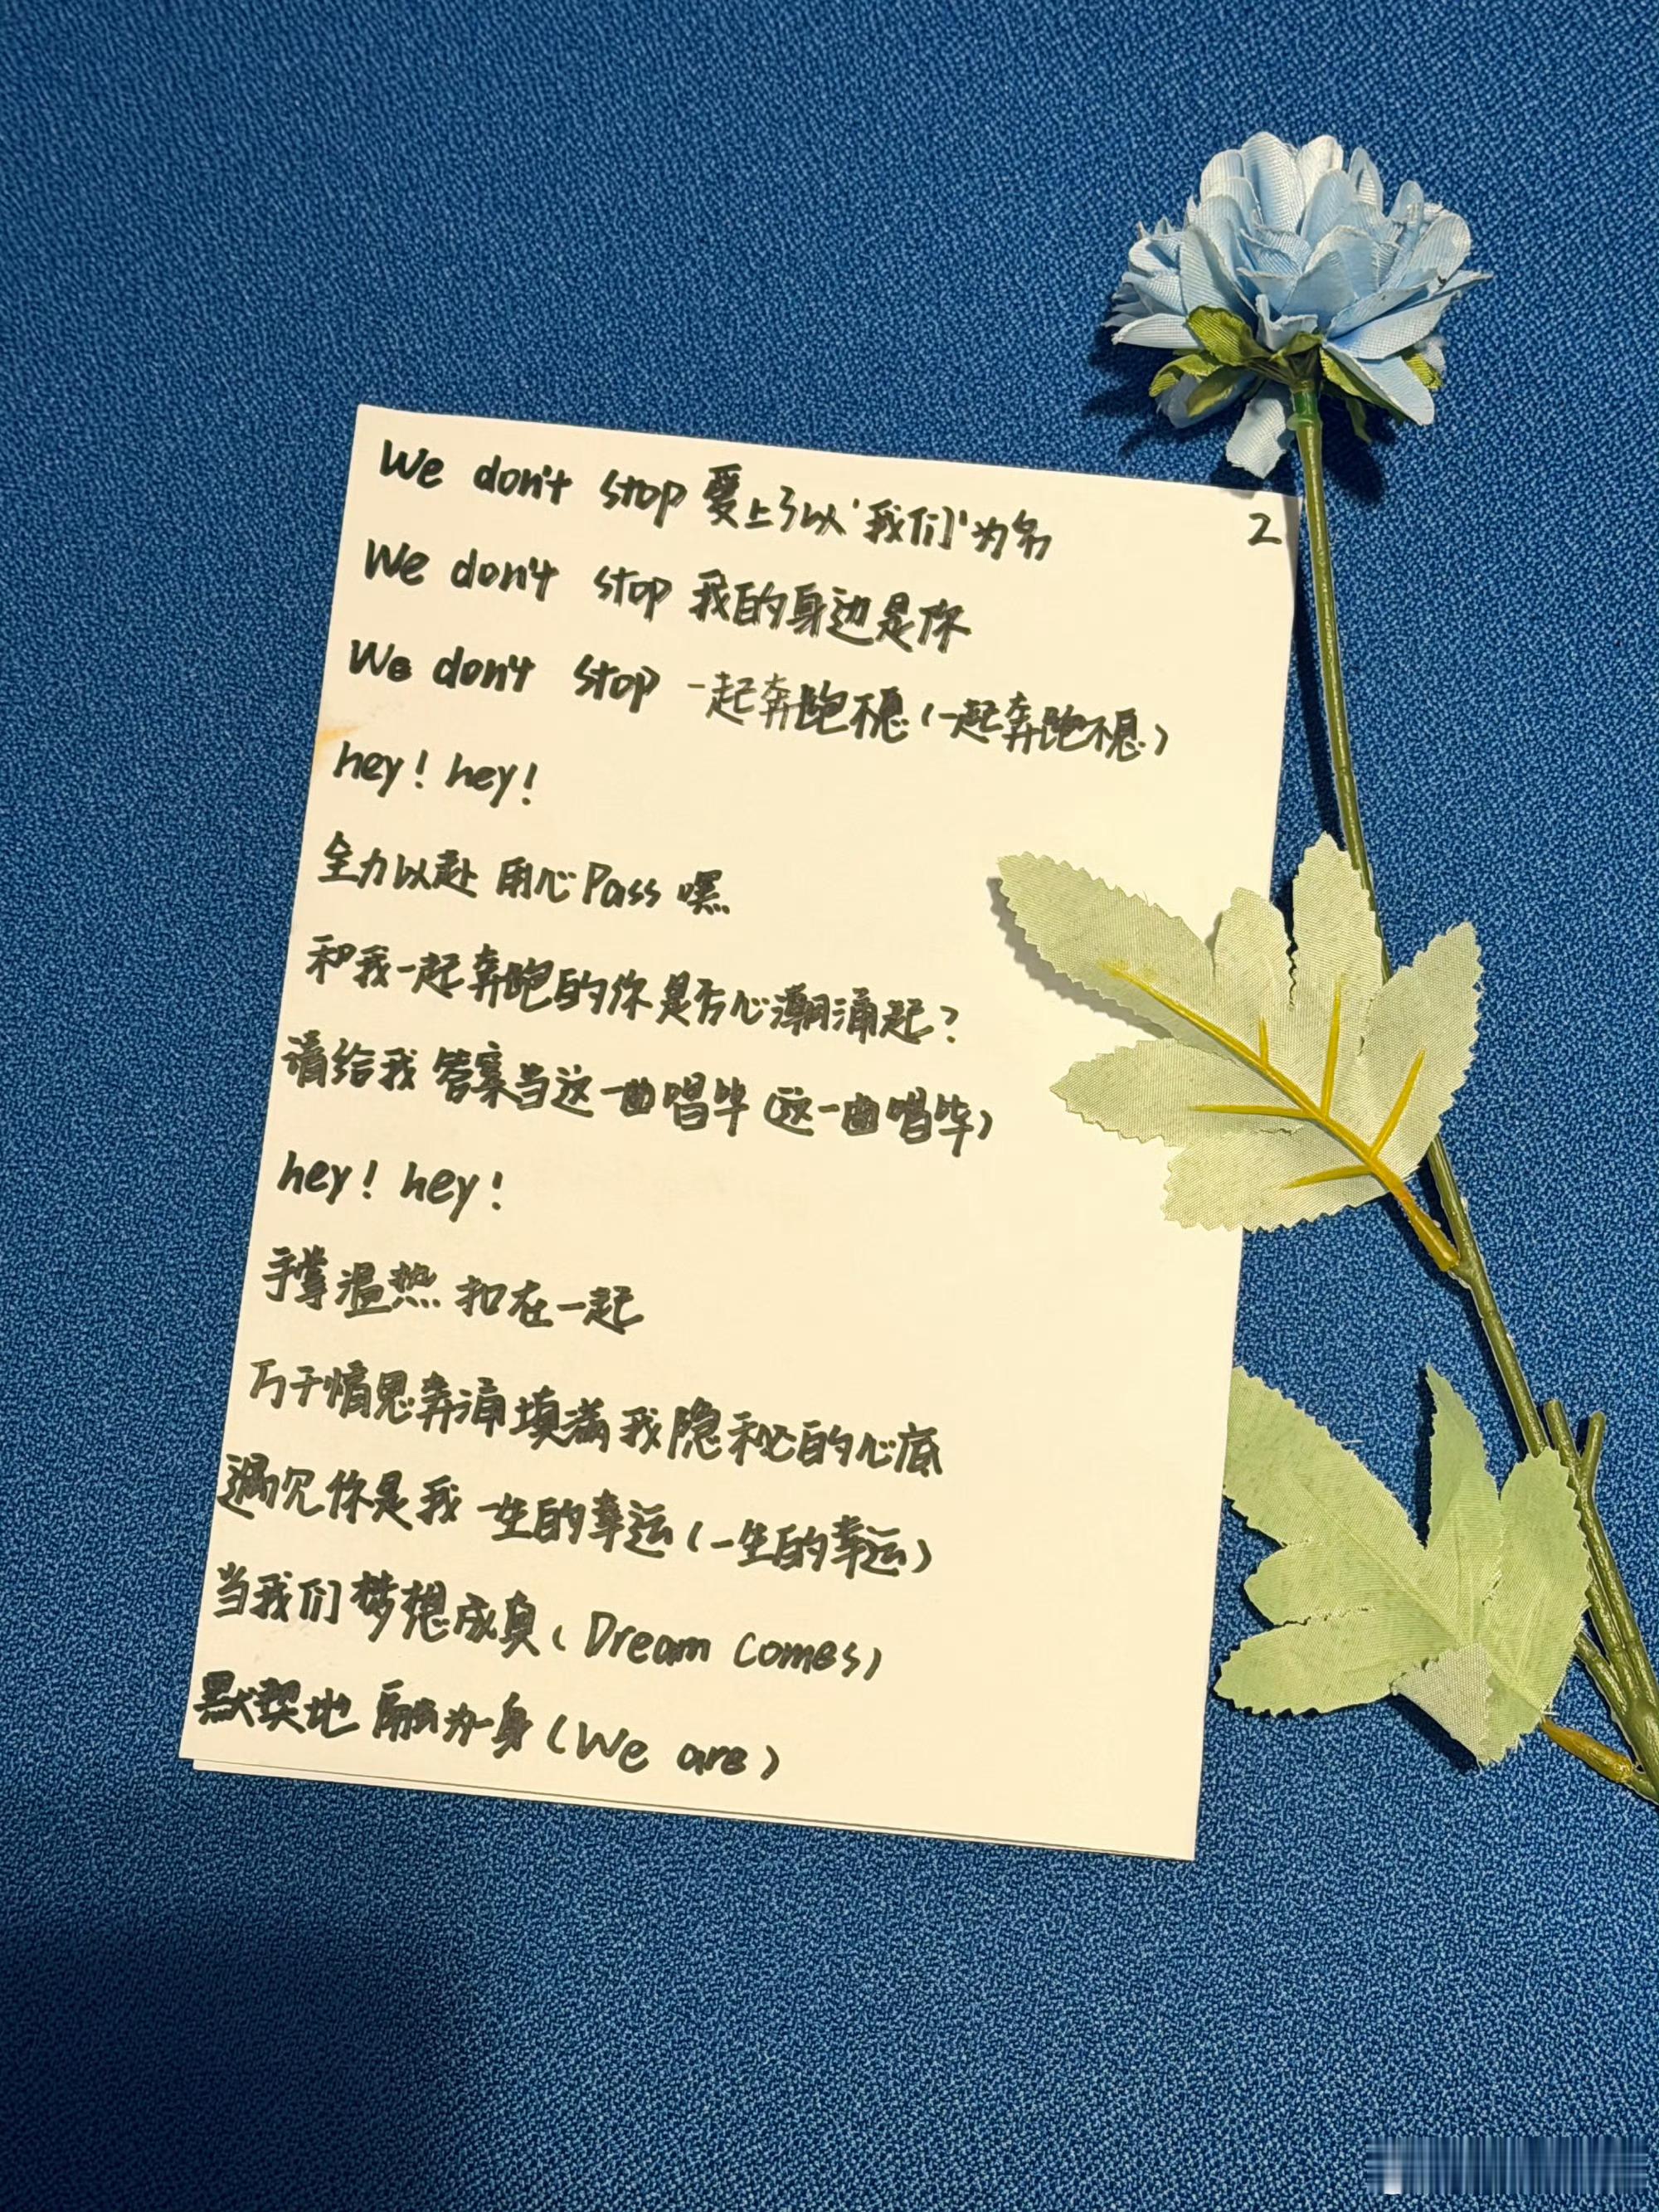 We don't stop 爱上了以'我们'为名
2
We don't stop 我的身边是你
We don't stop 一起奔跑不息(一起奔跑不息)
hey! hey!
全力以赴 用心Pass 嘿
和我一起奔跑的你是否心潮涌起?
请给我 答案当这一曲唱毕(这一曲唱毕)
hey! hey!
手掌温热 扣在一起
万千情思奔涌填满我隐秘的心底
遇见你是我 一生的幸运(一生的幸运)
当我们梦想成真(Dream comes)
默契地 融为一身(We are)